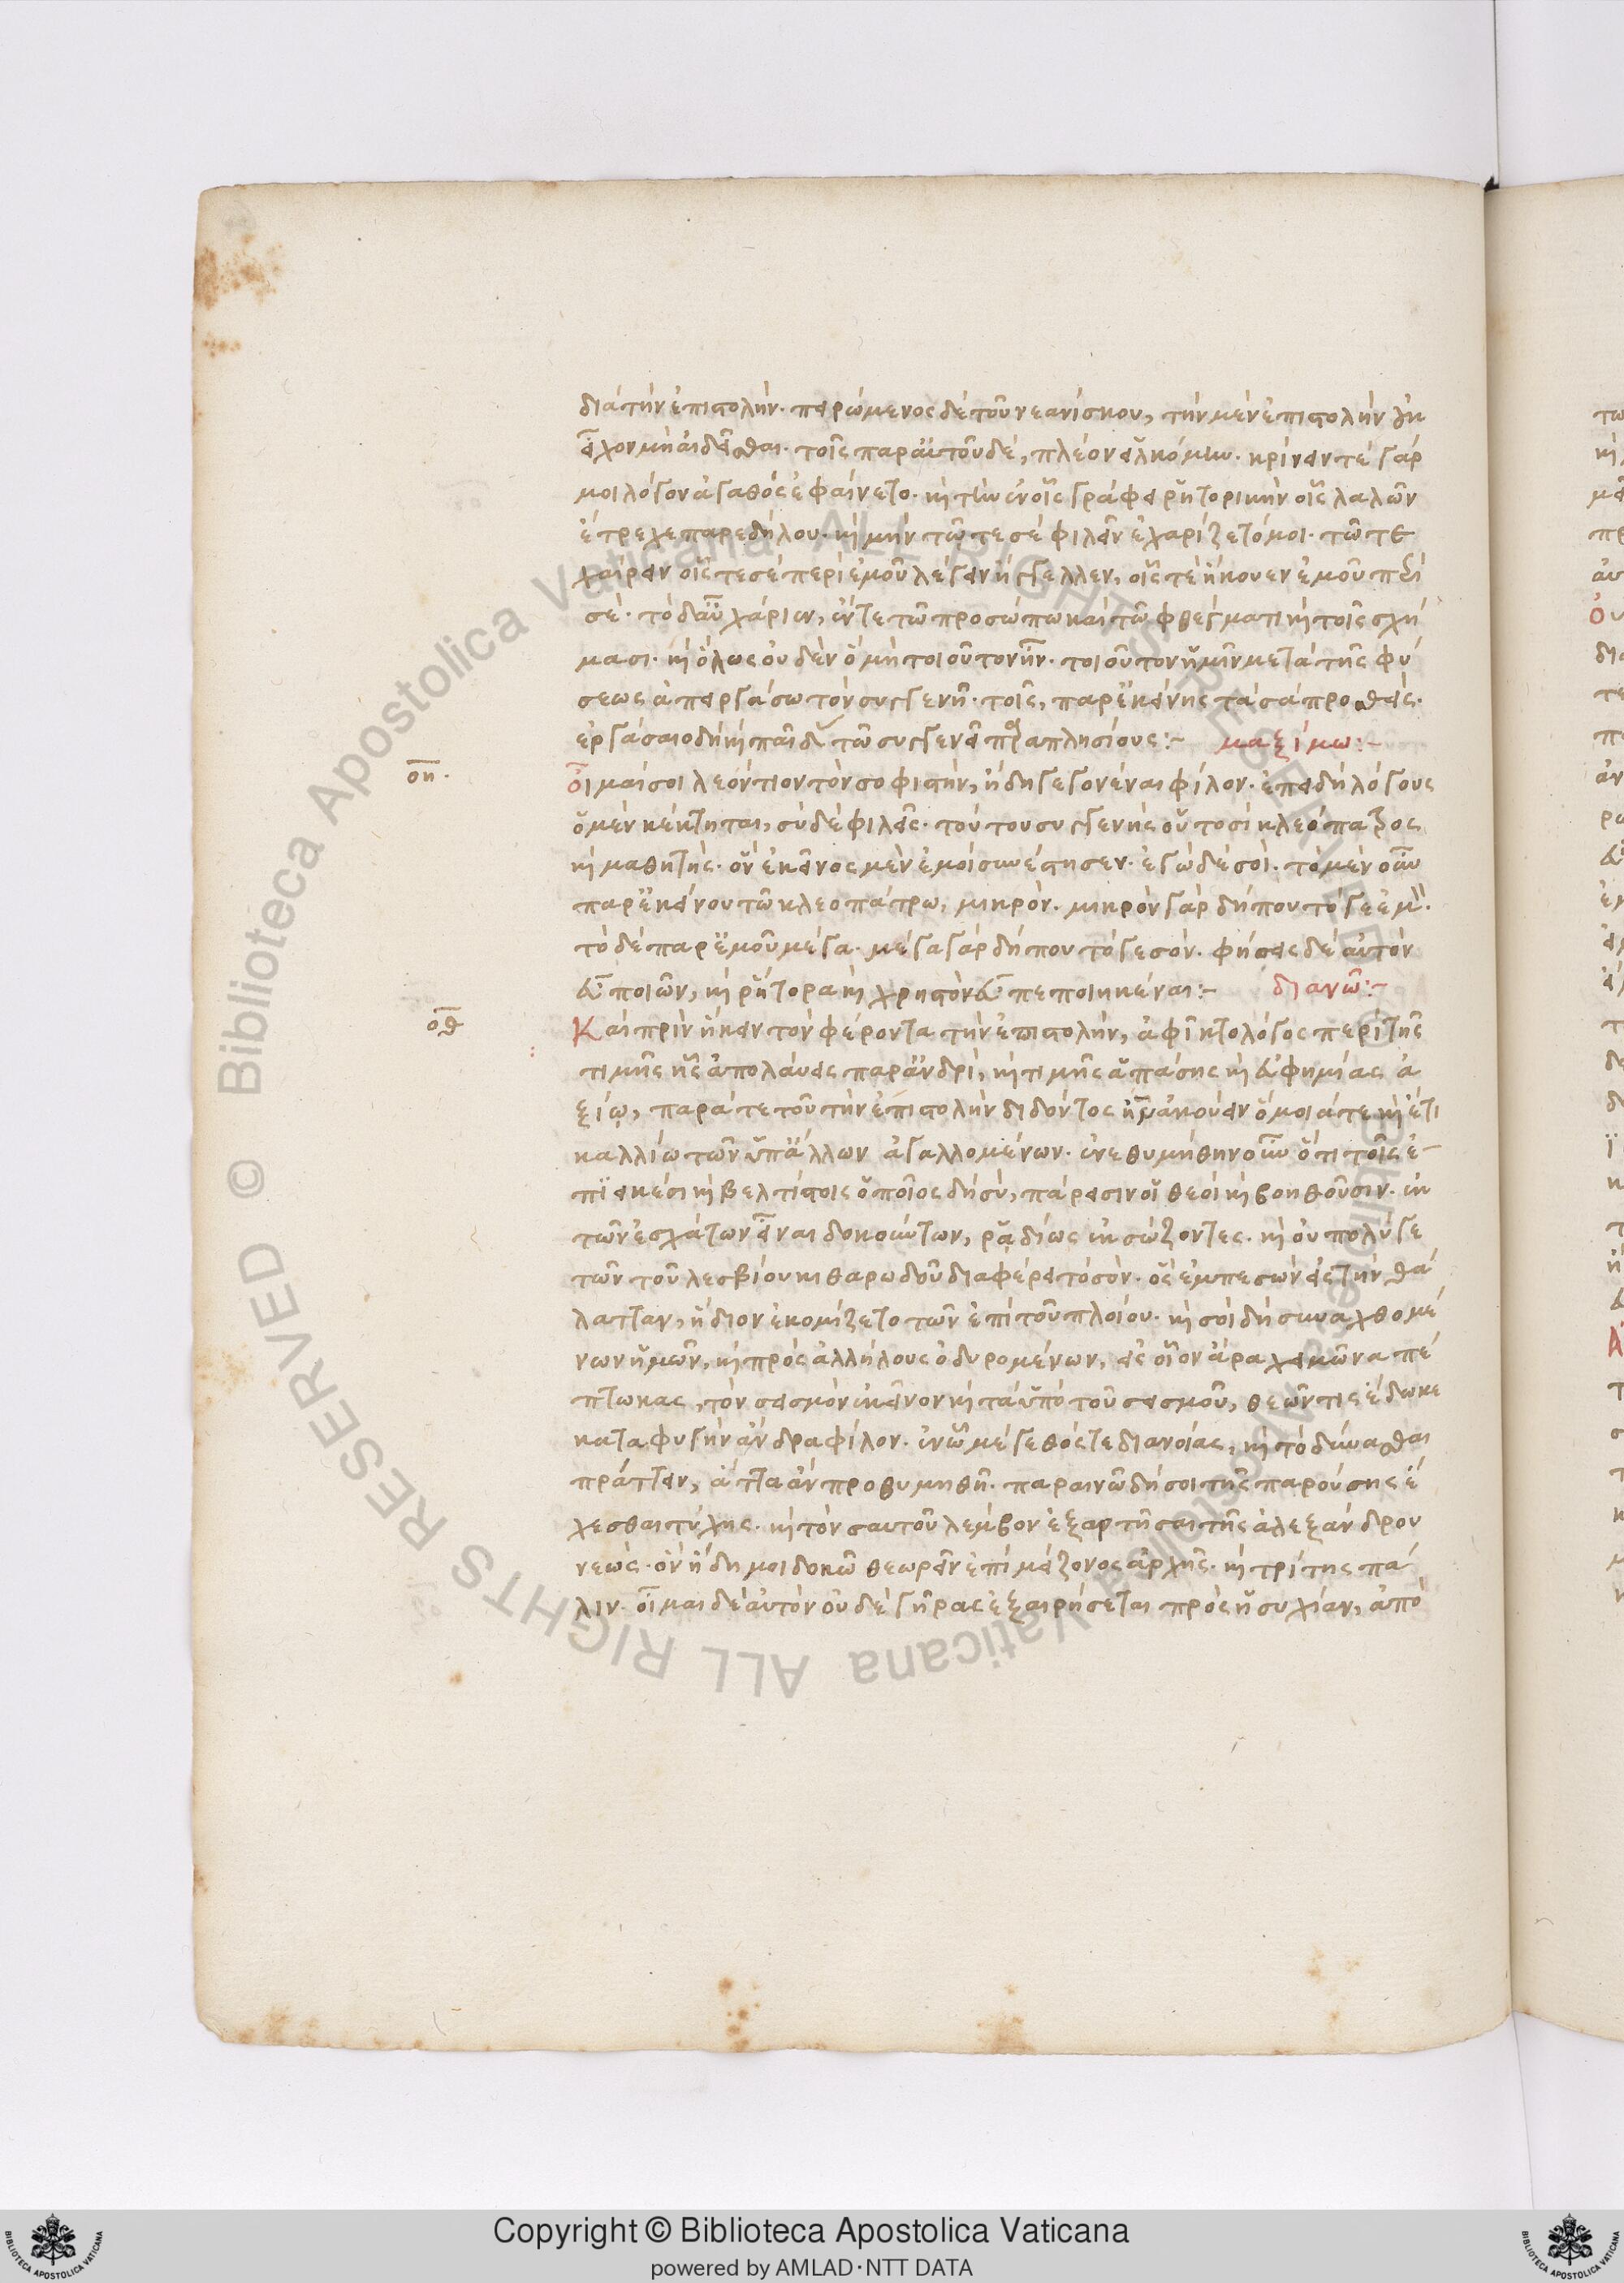 διὰ τὴν ἐπιστολήν. πειρώμενος δὲ τοῦ νεανίσκου, τὴν μὲν ἐπιστολὴν οὐκ
εἶχον μὴ αἰδεῖσθαι. τοῖς παρ' αὐτοῦ δὲ, πλέον εἱλκόμην. κρίνειν τὲ γάρ
μοι λόγον ἀγαθὸς ἐφαίνετο. καὶ τὴν ἐν οἷς γράφει ῥητορικὴν οἷς λαλῶν
ἔτρεχε παρεδήλου. καὶ μὴν τῷ τε σὲ φιλεῖν ἐχαρίζετό μοι. τῷ τε
χαίρειν οἷς τε σὲ περὶ ἐμοῦ λέγειν ἤγγελλεν, οἷς τὲ ἤκουεν ἐμοῦ περὶ
σέ. τὸ δ' αὖ χάριεν, ἔν τε τῷ προσώπω καὶ τῷ φθέγματι καὶ τοῖς σχή
μασι. καὶ ὅλως οὐδὲν ὃ μὴ τοιοῦτον ἦν. τοιοῦτον ἡμῖν μετὰ τῆς φύ
σεως ἀπειργάσω τὸν συγγενῆ. τοῖς, παρ' ἐκείνης τὰ σὰ προσθείς.
ἐργάσαιο δὴ καὶ παῖδας τῷ συγγενεῖ παραπλησίους:- μαξίμω:-
οη.
οἶμαί σοι λεόντιον τὸν σοφιστὴν, ἤδη γεγονέναι φίλον. ἐπειδὴ λόγους
ὁ μὲν κέκτηται, σὺ δὲ φιλεῖς. τούτου συγγενὴς οὑτοσὶ κλεόπατρος
καὶ μαθητής. ὃν ἐκεῖνος μὲν ἐμοὶ συνέστησεν. ἐγὼ δὲ σοί. τὸ μὲν οὖν
παρ' ἐκείνου τῷ κλεοπάτρω, μικρόν. μικρὸν γὰρ δήπου τό γε ἐμόν.
τὸ δὲ παρ' ἐμοῦ μέγα. μέγα γὰρ δήπου τό γε σόν. φήσεις δὲ αὐτὸν
εὖ ποιῶν, καὶ ῥήτορα καὶ χρηστὸν εὖ πεποιηκέναι:- διανῶ:-
οθ
Καὶ πρὶν ἥκειν τὸν φέροντα τὴν ἐπιστολὴν, ἀφίκετο λόγος περὶ τῆς
τιμῆς ἧς ἀπολαύεις παρ' ἀνδρὶ, καὶ τιμῆς ἁπάσης καὶ εὐφημίας ἀ
ξίῳ, παρά τε τοῦ τὴν ἐπιστολὴν διδόντος ἦν ἀκούειν ὅμοιά τε καὶ ἔτι
καλλίω τῶν ὑπ' ἄλλων ἀγαλλομένων. ἐνεθυμήθην οὖν ὅτι τοῖς ἐ-
πιεικέσι καὶ βελτίστοις ὁποῖος δὴ σὺ, πάρεισιν οἱ θεοὶ καὶ βοηθοῦσιν. ἐκ
τῶν ἐσχάτων εἶναι δοκούντων, ῥᾳδίως ἐκσώζοντες. καὶ οὐ πολύ γε
τῶν τοῦ λεσβίου κιθαρωδοῦ διαφέρει τὸ σόν. ὃς ἐμπεσὼν εἰς τὴν θά
λατταν, ἥδιον ἐκομίζετο τῶν ἐπὶ τοῦ πλοίου. καὶ σοὶ δὴ συναχθομέ
νων ἡμῶν, καὶ πρὸς ἀλλήλους ὀδυρομένων, εἰς οἷον ἄρα χειμῶνα πέ
πτωκας, τὸν σεισμὸν ἐκεῖνον καὶ τὰ ὑπὸ τοῦ σεισμοῦ, θεῶν τις ἔδωκε
καταφυγὴν ἄνδρα φίλον. ἐν ᾧ μέγεθός τε διανοίας, καὶ τὸ δύνασθαι
πράττειν, ἅττα ἂν προθυμηθῇ. παραινῶ δή σοι τῆς παρούσης ἔ
χεσθαι τύχης. καὶ τὸν σαυτοῦ λέμβον ἐξαρτῆσαι τῆς ἀλεξάνδρου
νεώς. ὃν ἤδη μοι δοκῶ θεωρεῖν ἐπὶ μείζονος ἀρχῆς. καὶ τρίτης πά
λιν. οἶμαι δὲ αὐτὸν οὐδὲ γῆρας ἐξαιρήσεται πρὸς ἡσυχίαν, ἀπὸ
Copyright © Biblioteca Apostolica Vaticana
powered by AMLAD·NTT DATA